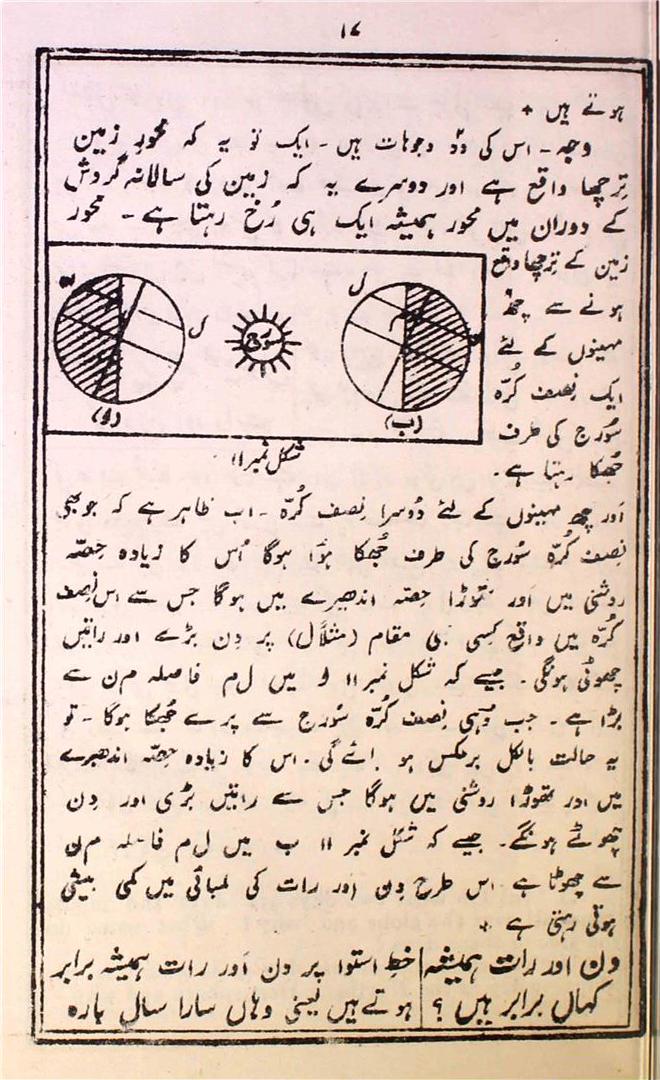 ۱۷
ہوتے ہیں +
وجہ ۔ اس کی دو وجوہات ہیں ۔ ایک تو یہ کہ محورِ زمین
ترچھا واقع ہے اور دوسرے یہ کہ زمین کی سالانہ گردش
کے دوران میں محور ہمیشہ ایک ہی رُخ رہتا ہے ۔ محور
زمین کے ترچھا واقع
ہونے سے چھ
مہینوں کے لئے
ایک نصف کُرّہ
سُورج کی طرف
جُھکا رہتا ہے ۔
ل
ل
سورج
م
(و)
(ب)
شکل نمبر ۱۱
اَور چھ مہینوں کے لئے دُوسرا نِصف کُرّہ ۔ اب ظاہر ہے کہ جو بھی
نِصف کُرّہ سُورج کی طرف جُھکا ہوَا ہوگا اُس کا زیادہ حِصّہ
روشنی میں اَور تھوڑا حِصّہ اندھیرے میں ہوگا جس سے اس نِصف
کُرّہ میں واقع کِسی بھی مقام (مثلاً ل) پر دِن بڑے اور راتیں
چھوٹی ہونگی ۔ جیسے کہ شکل نمبر ۱۱ و میں ل م فاصلہ م ن سے
بڑا ہے ۔ جب وُہی نِصف کُرّہ سُورج سے پرے جُھکا ہوگا ۔ تو
یہ حالت بالکل برعکس ہو جائے گی ۔ اس کا زیادہ حِصّہ اندھیرے
میں اور تھوڑا روشنی میں ہوگا جس سے راتیں بڑی اور دِن
چھوٹے ہونگے ۔ جیسے کہ شکل نمبر ۱۱ ب میں ل م فاصلہ م ن
سے چھوٹا ہے اس طرح دِن اور رات کی لمبائی میں کمی بیشی
ہوتی رہتی ہے +
دن اور رات ہمیشہ
کہاں برابر ہیں ؟
خط استوا پر دن اَور رات ہمیشہ برابر
ہوتے ہیں یعنی وہاں سارا سال بارہ